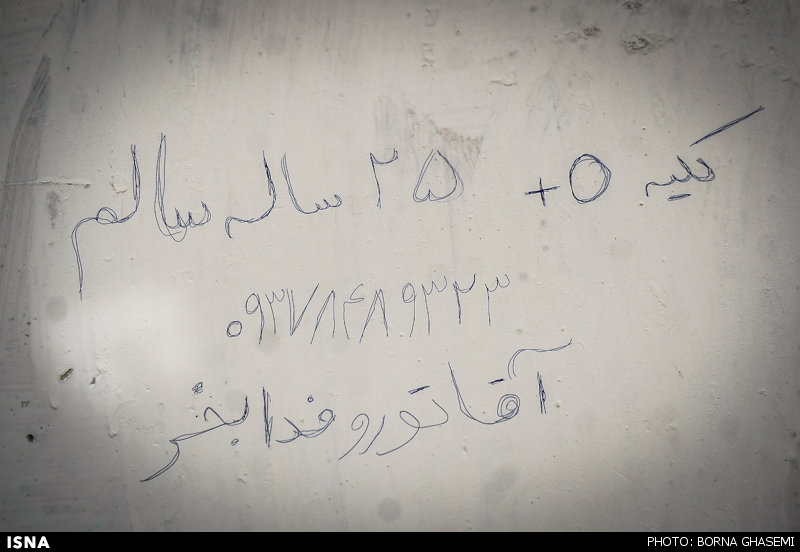 کلیه O+ ۲۵ ساله سالم
۰۹۳۷۸۴۸۹۳۲۳
آقا تورو خدا بخر
ISNA
PHOTO: BORNA GHASEMI